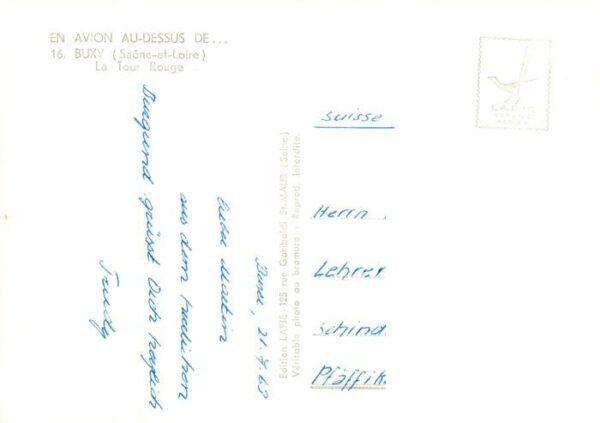 EN AVION AU-DESSUS DE...
16. BUXY (Saône-et-Loire)
La Tour Rouge
LAPIE
Edition LAPIE - 125 rue Garibaldi St-MAUR (Seine)
Véritable photo au bromure - Reprod. Interdite
Suisse
Herrn
Lehrer
Schind
Pfäffik
Buxy, 21.7.63
Lieber Martin
aus dem
Burgund grüsst Dich herzlich
Trudy